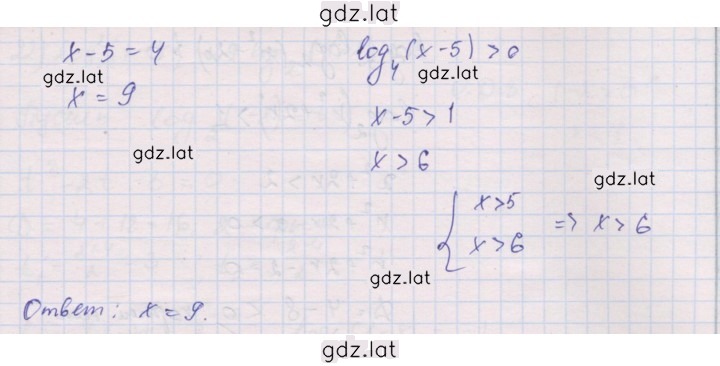 gdz.lat
x-5=4
gdz.lat
x=9
gdz.lat
log₄(x-5)>0
gdz.lat
x-5>1
x>6
gdz.lat
{ x>5
x>6 ⇒ x>6
gdz.lat
Ответ: x=9.
gdz.lat